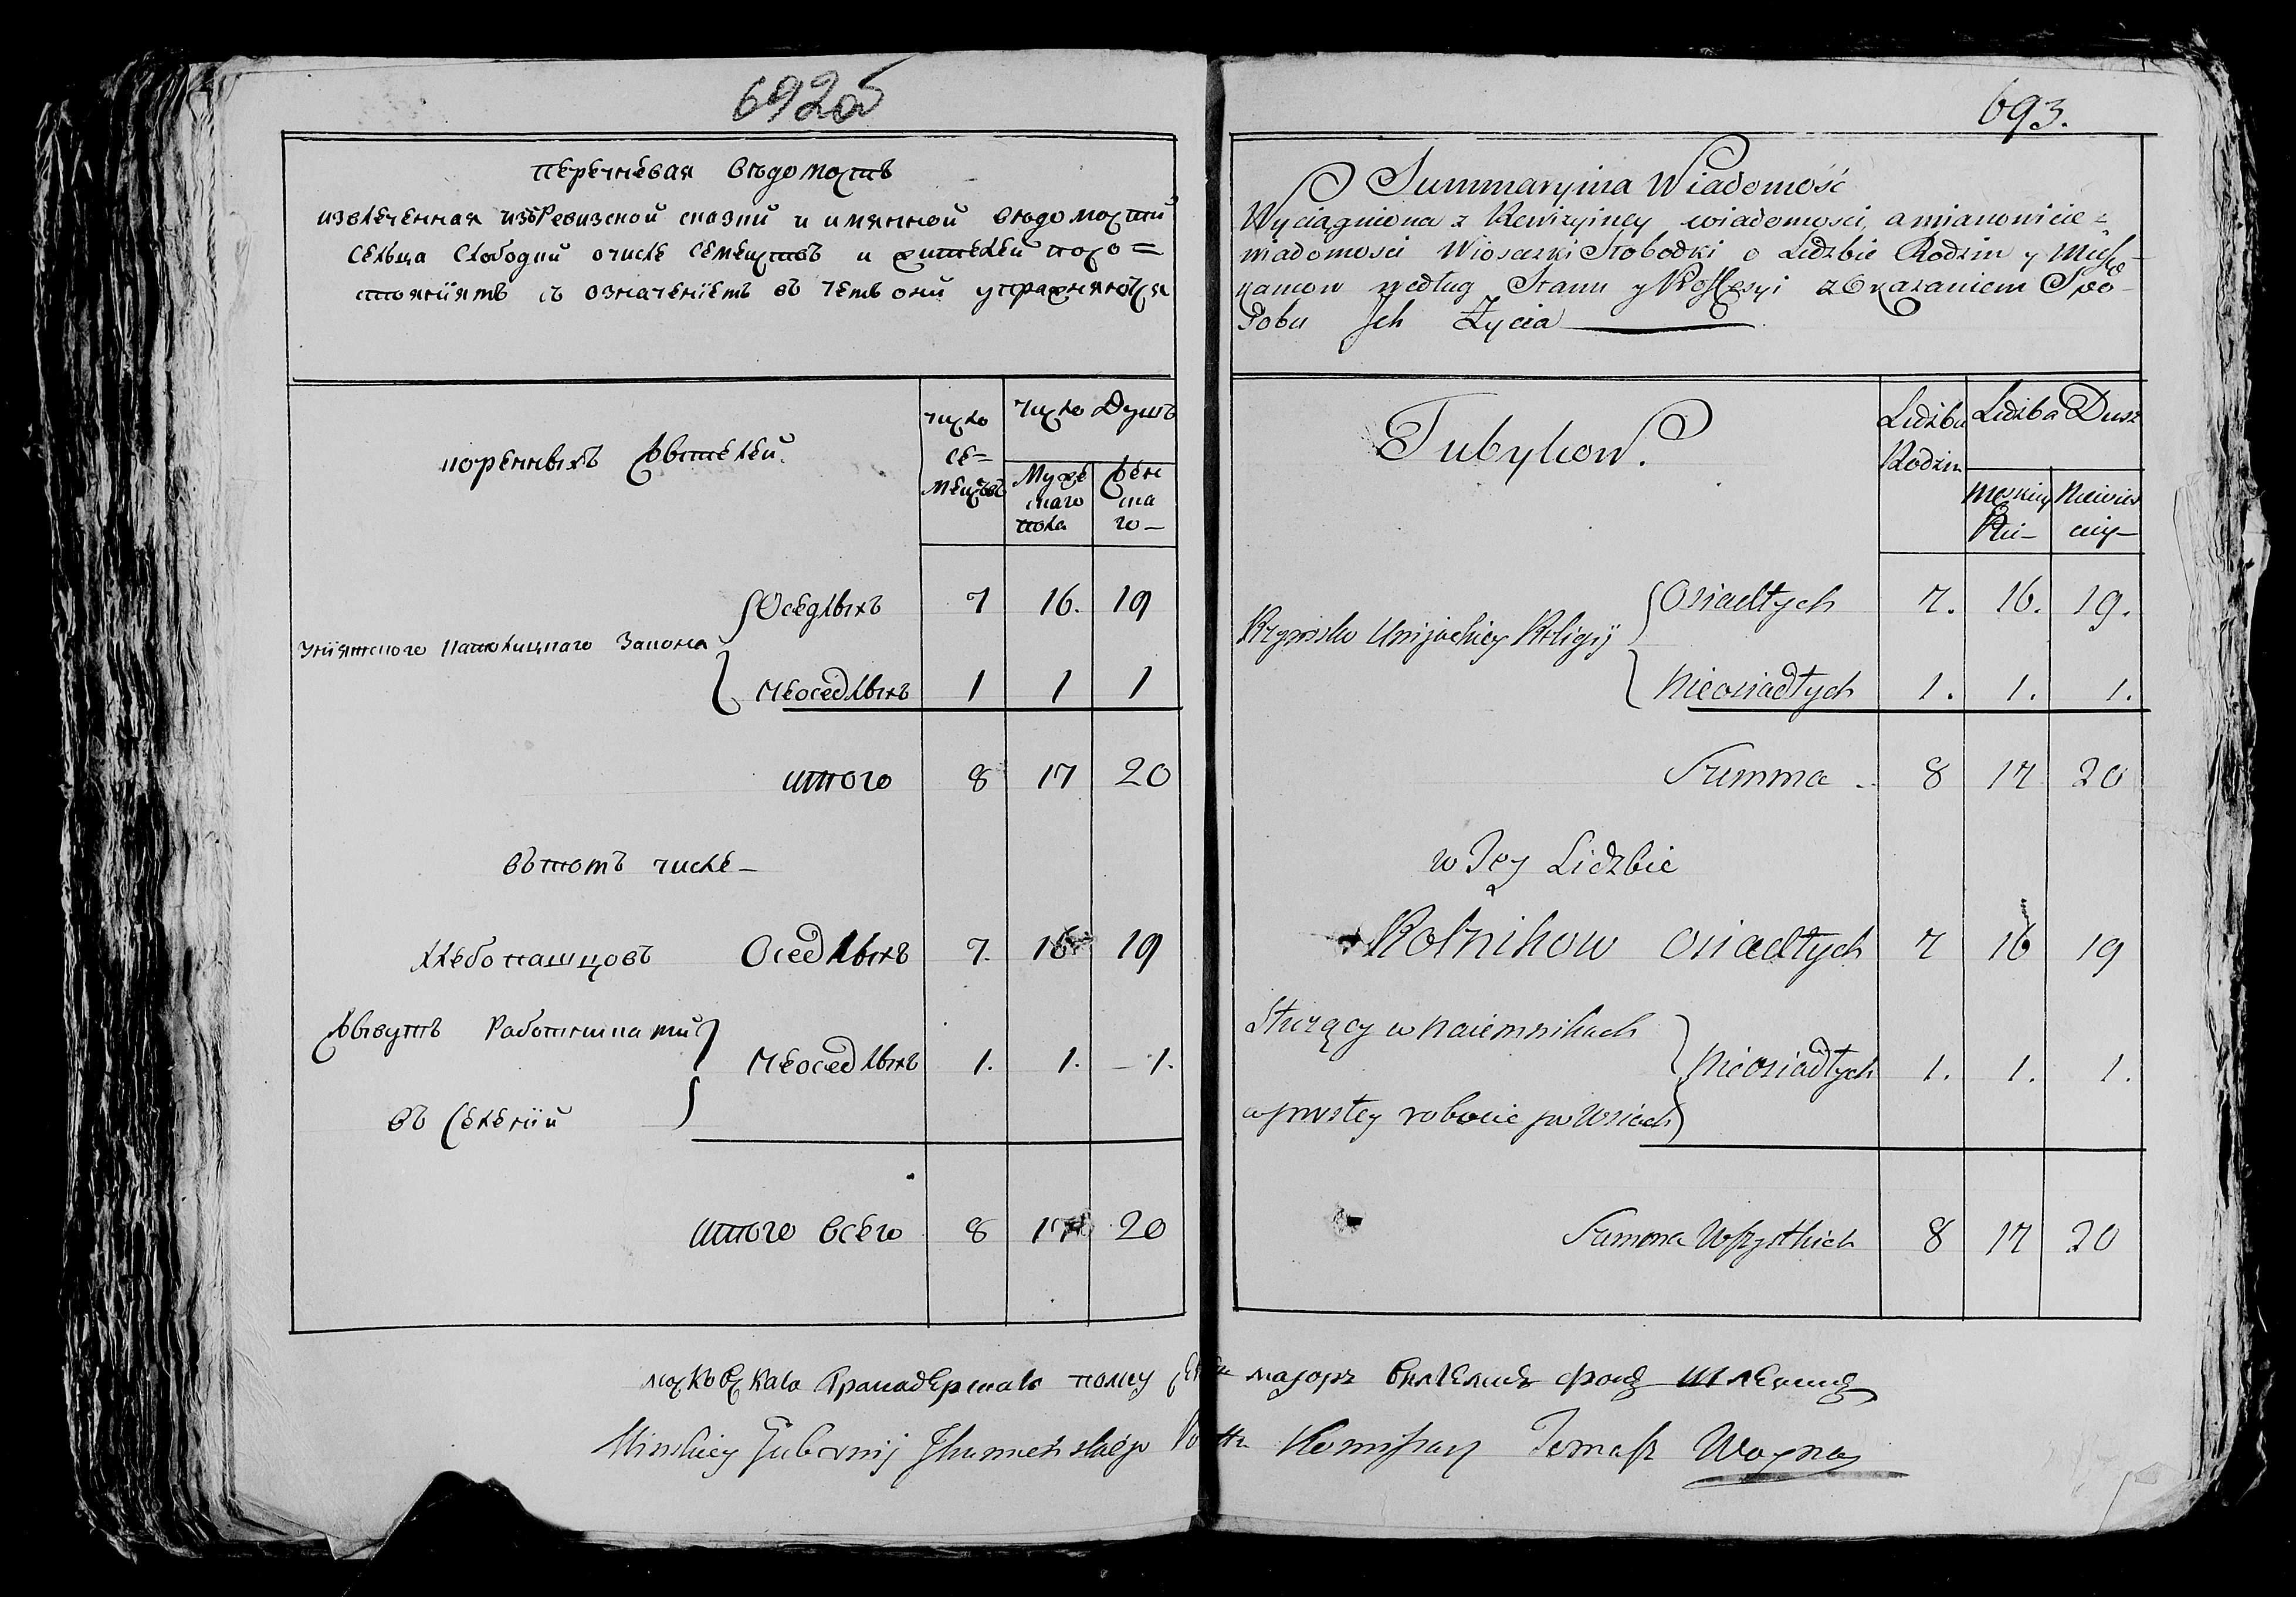 692об
перечневая вѣдомость
извлеченная изъ Ревизской сказки и имянной вѣдомости
сельца Слободки о числе семействъ и жителей по со=
стояніямъ съ означеніемъ въ чемъ они упражняются
коренныхъ жителей.
число
се=
мействъ
число Душъ
Муже
скаго
пола
жен
ска
го—
Уніятского Католицкаго Закона
Оседлыхъ 7 16. 19
Неоседлыхъ 1 1 1
итого 8 17 20
въ томъ числе —
хлебопашцовъ Оседлыхъ 7. 16 19
живутъ Работниками
Неоседлыхъ 1. 1. 1.
въ Селеніи
итого всего 8 17 20
693.
Summaryina Wiadomość
Wyciągniona z Rewizyiney wiadomosci, a mianowicie
wiadomosci Wioseczki Słobodki o Lidzbie Rodzin y Miesz
kancow według Stanu y Proffesyi z Okazaniem Spo
sobu Jch Życia
Tubylcow.
Lidzba
Rodzin
Lidzba Dusz
męskiey
Płci—
Niewies
ciey—
Rzymsko Unijackiey Religij
Osiadłych 7. 16. 19.
Nieosiadłych 1. 1. 1.
Summa 8 17 20
w Tey Lidzbie
Rolnikow osiadłych 7 16 19
Służący w naiemnikach
Nieosiadłych 1. 1. 1.
w prostey robocie po Wsiach
Summa Wszystkich 8 17 20
московскаго Гранадерскаго полку маіоръ
Minskiey Gubernij Jhumeńskiego Komissarz Tomasz Woyna